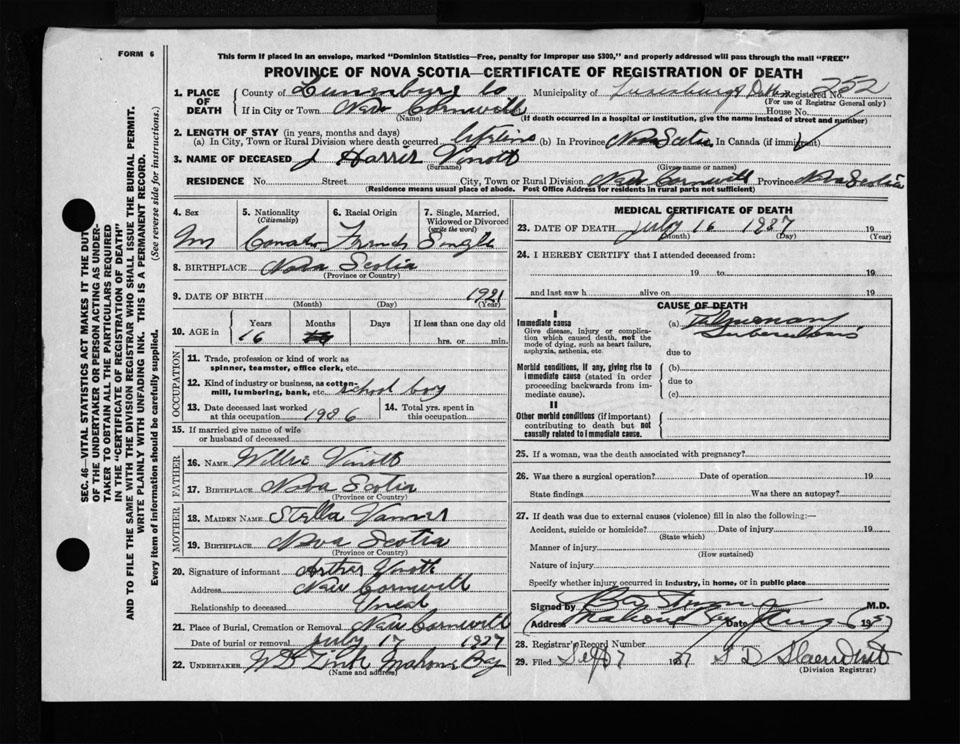 FORM 6
This form if placed in an envelope, marked "Dominion Statistics—Free, penalty for improper use $300," and properly addressed will pass through the mail "FREE"
PROVINCE OF NOVA SCOTIA—CERTIFICATE OF REGISTRATION OF DEATH
1. PLACE OF DEATH
County of Lunenburg Co Municipality of Lunenburg Registered No. 252
(For use of Registrar General only)
If in City or Town New Cornwall House No.
(Name) (If death occurred in a hospital or institution, give the name instead of street and number)
2. LENGTH OF STAY (in years, months and days)
(a) In City, Town or Rural Division where death occurred lifetime (b) In Province Nova Scotia In Canada (if immigrant)
3. NAME OF DECEASED J Harris Vinott
(Surname) (Given name or names)
RESIDENCE No. Street City, Town or Rural Division New Cornwall Province Nova Scotia
(Residence means usual place of abode. Post Office Address for residents in rural parts not sufficient)
4. Sex 5. Nationality (Citizenship) 6. Racial Origin 7. Single, Married, Widowed or Divorced (write the word)
M French Single
8. BIRTHPLACE Nova Scotia
(Province or Country)
9. DATE OF BIRTH 1921
(Month) (Day) (Year)
10. AGE in Years Months Days If less than one day old
16 hrs. or min.
OCCUPATION
11. Trade, profession or kind of work as
spinner, teamster, office clerk, etc.
12. Kind of industry or business, as cotton-
mill, lumbering, bank, etc. school boy
13. Date deceased last worked
at this occupation 1936
14. Total yrs. spent in
this occupation
15. If married give name of wife
or husband of deceased
FATHER
16. NAME Willie Vinott
17. BIRTHPLACE Nova Scotia
(Province or Country)
MOTHER
18. MAIDEN NAME Stella
19. BIRTHPLACE Nova Scotia
(Province or Country)
20. Signature of informant Arthur Vinott
Address New Cornwall
Relationship to deceased
21. Place of Burial, Cremation or Removal New Cornwall
Date of burial or removal July 17 1937
22. UNDERTAKER Mahone Bay
(Name and address)
MEDICAL CERTIFICATE OF DEATH
23. DATE OF DEATH July 16 1937 19
(Month) (Day) (Year)
24. I HEREBY CERTIFY that I attended deceased from:
19 to 19
and last saw h alive on 19
CAUSE OF DEATH
I
Immediate cause
Give disease, injury or complica-
tion which caused death, not the
mode of dying, such as heart failure,
asphyxia, asthenia, etc.
(a) Pulmonary
Tuberculosis
due to
Morbid conditions, if any, giving rise to
immediate cause (stated in order
proceeding backwards from im-
mediate cause).
(b)
due to
(c)
II
Other morbid conditions (if important)
contributing to death but not
causally related to immediate cause.
25. If a woman, was the death associated with pregnancy?
26. Was there a surgical operation? Date of operation 19
State findings Was there an autopsy?
27. If death was due to external causes (violence) fill in also the following:—
Accident, suicide or homicide? Date of injury 19
(State which)
Manner of injury
(How sustained)
Nature of injury
Specify whether injury occurred in industry, in home, or in public place
Signed by M.D.
Address Mahone Bay Date Aug 6 1937
28. Registrar's Record Number
29. Filed Sept 7 1937
(Division Registrar)
SEC. 46—VITAL STATISTICS ACT MAKES IT THE DUTY
OF THE UNDERTAKER OR PERSON ACTING AS UNDER-
TAKER TO OBTAIN ALL THE PARTICULARS REQUIRED
IN THE "CERTIFICATE OF REGISTRATION OF DEATH"
AND TO FILE THE SAME WITH THE DIVISION REGISTRAR WHO SHALL ISSUE THE BURIAL PERMIT.
WRITE PLAINLY WITH UNFADING INK. THIS IS A PERMANENT RECORD.
Every item of information should be carefully supplied. (See reverse side for instructions.)